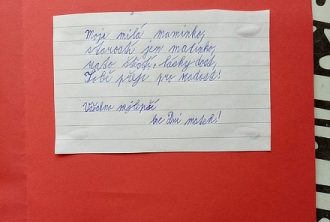 Moje milá maminko,
starostí jen malinko,
zato štěstí, lásky dost,
Tobě přeje pro radost!
Všechno nejlepší
ke Dni matek!